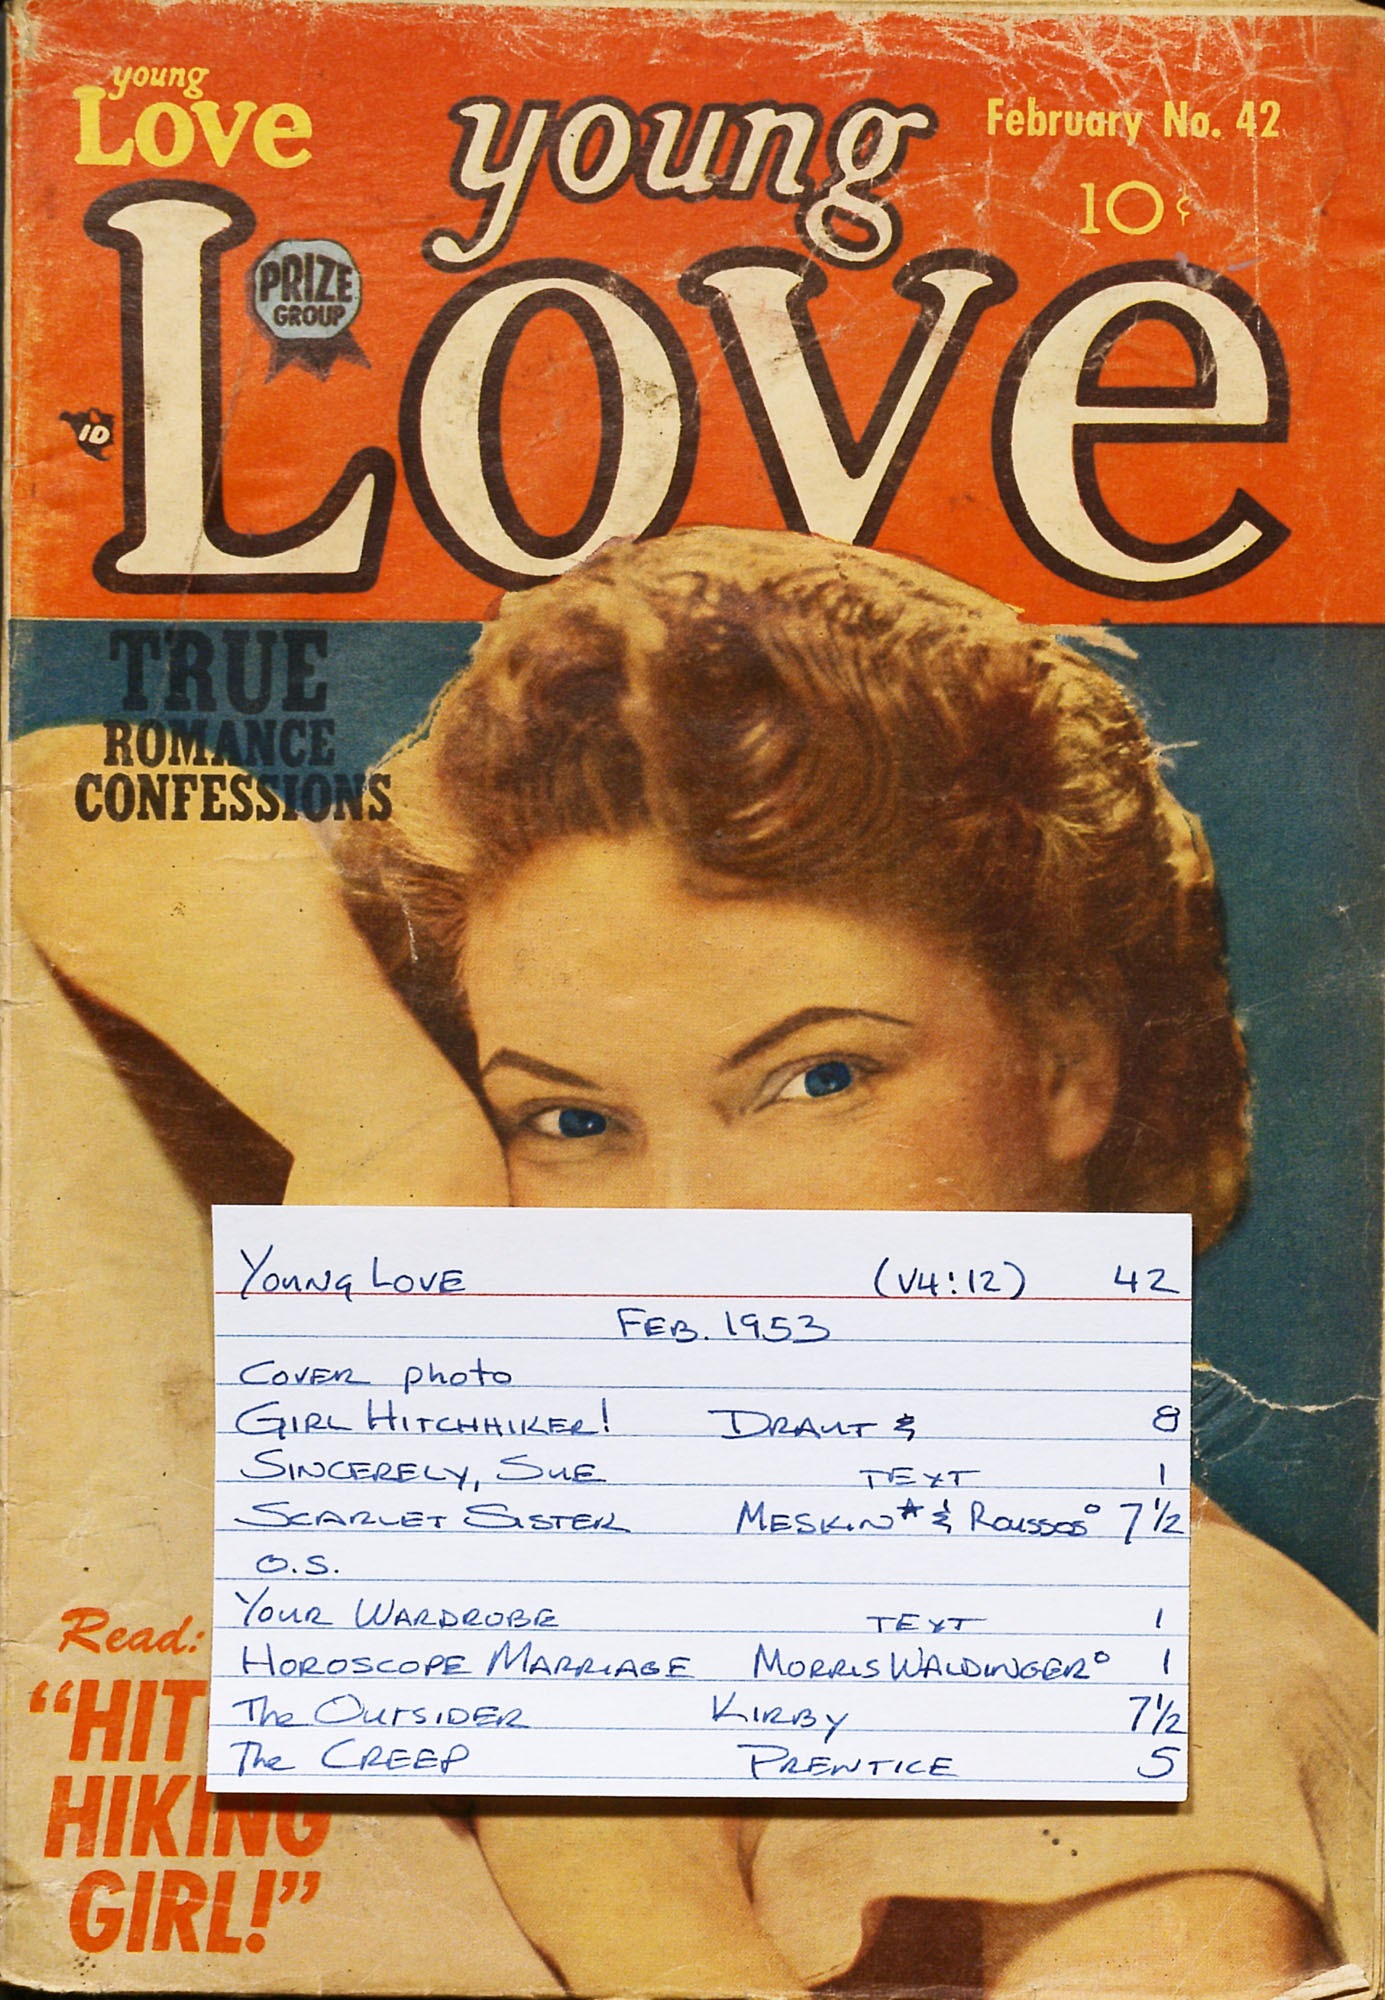 young
Love
young
Love
February No. 42
10¢
PRIZE
GROUP
ID
TRUE
ROMANCE
CONFESSIONS
YOUNG LOVE (V4:12) 42
FEB. 1953
COVER photo
GIRL HITCHHIKER! DRAUT & 8
SINCERELY, SUE TEXT 1
SCARLET SISTER MESKIN* & Roussos° 7 1/2
O.S.
YOUR WARDROBE TEXT 1
HOROSCOPE MARRIAGE MORRIS WALDINGER° 1
The OUTSIDER KIRBY 7 1/2
The CREEP PRENTICE 5
Read:
"HIT
HIKING
GIRL!"